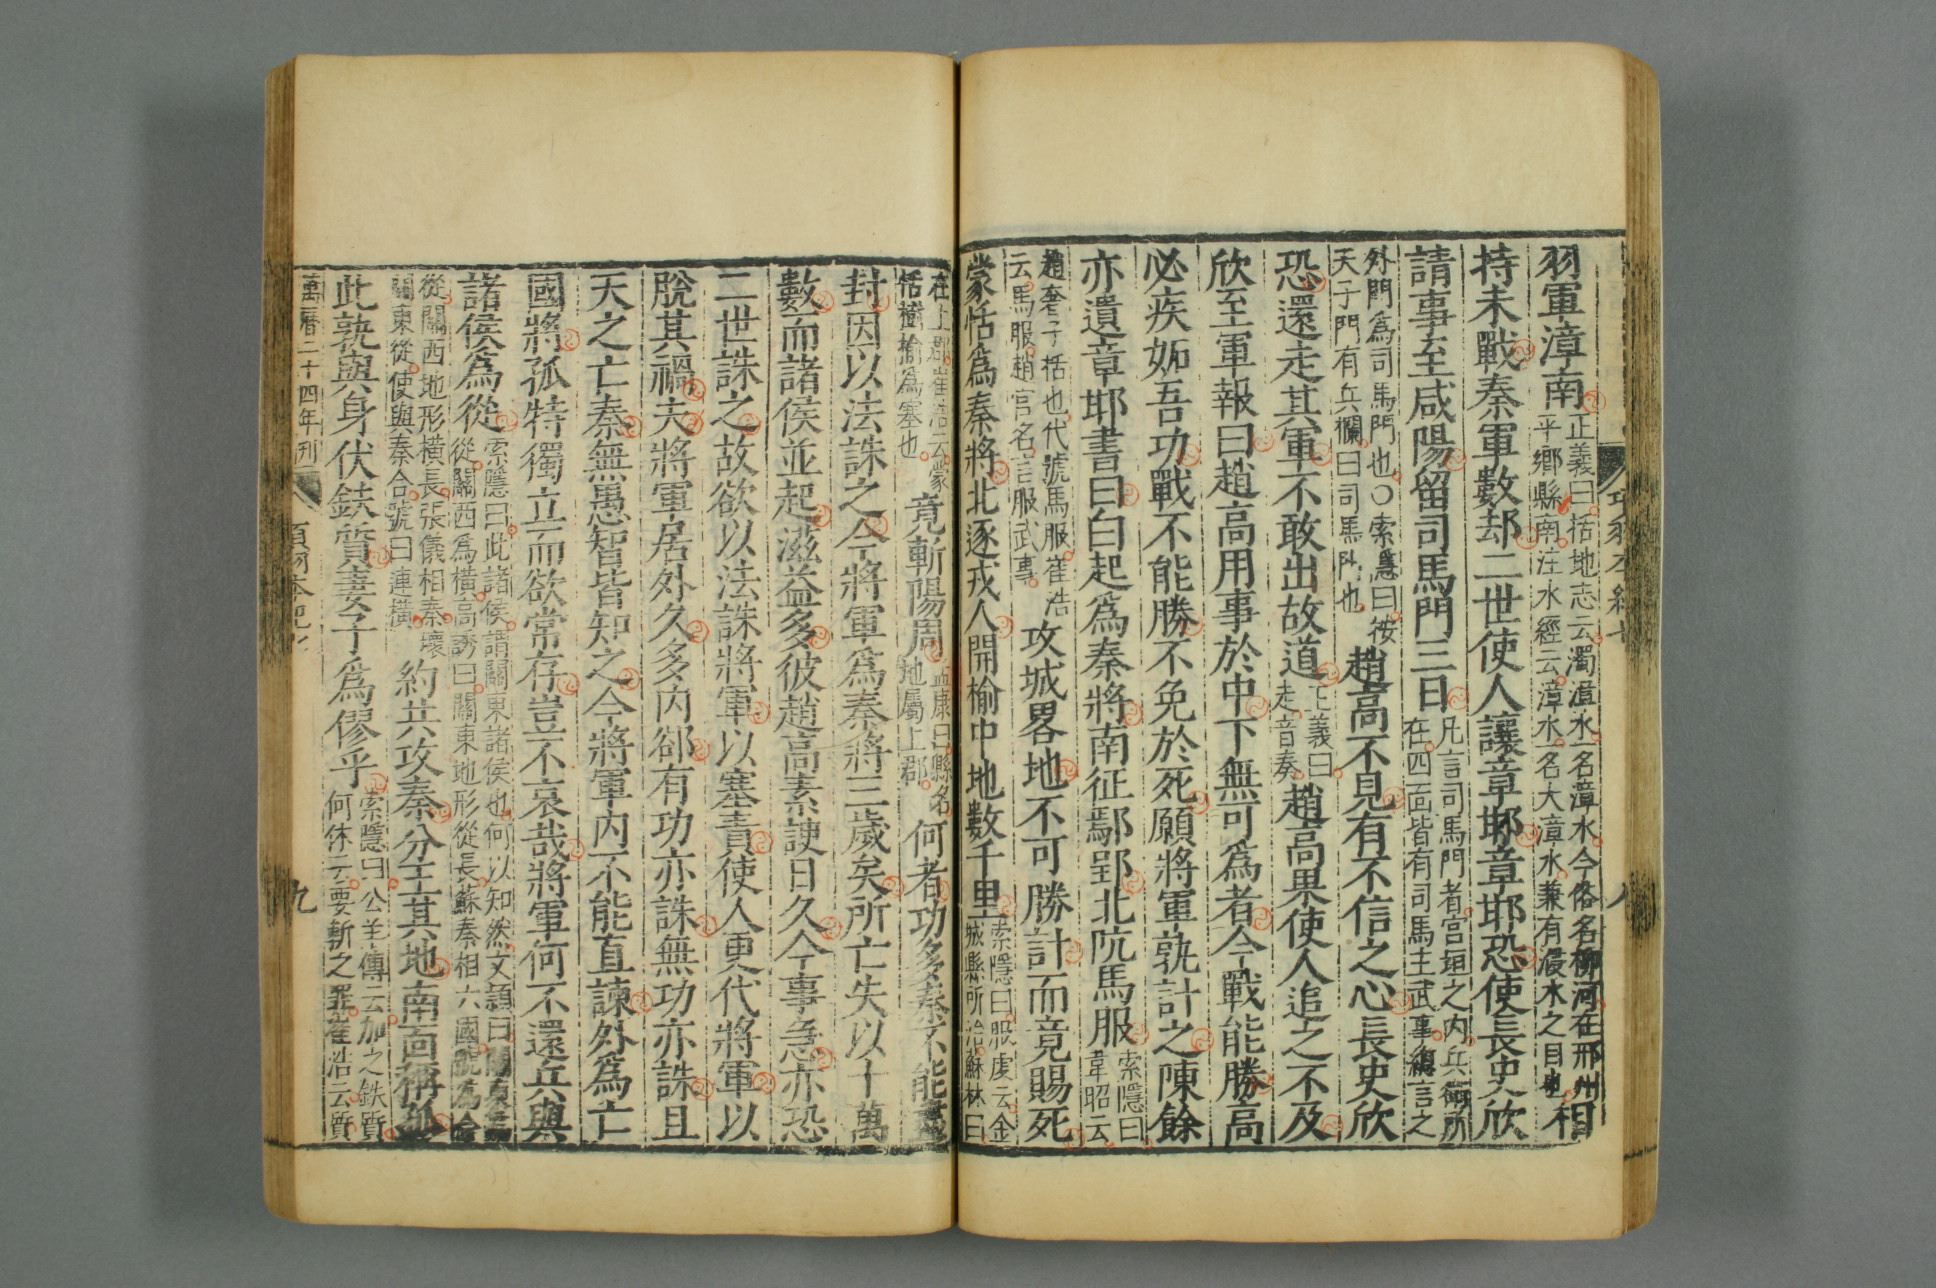 羽軍漳南正義曰括地志云濁漳水一名漳水今俗名柳河在邢州平鄉縣南注水經云漳水一名大漳水兼有浸水之目也相
持未戰秦軍數却二世使人讓章邯章邯恐使長史欣
請事至咸陽留司馬門三日凡言司馬門者宮垣之内兵衞所在四面皆有司馬主武事緫言之
外門爲司馬門也○索隱曰按天子門有兵欄曰司馬門也趙高不見有不信之心長史欣
恐還走其軍不敢出故道正義曰走音奏趙高果使人追之不及
欣至軍報曰趙高用事於中下無可爲者今戰能勝高
必疾妬吾功戰不能勝不免於死願將軍孰計之陳餘
亦遺章邯書曰白起爲秦將南征鄢郢北阬馬服索隱曰韋昭云
趙奢子括也代號馬服崔浩云馬服趙官名言服武事攻城畧地不可勝計而竟賜死
蒙恬爲秦將北逐戎人開榆中地數千里索隱曰服虔云金城縣所治蘇林曰
在上郡崔浩云蒙恬樹榆爲塞也竟斬陽周孟康曰縣名地屬上郡何者功多秦不能盡
封因以法誅之今將軍爲秦將三歲矣所亡失以十萬
數而諸侯並起滋益多彼趙高素諛日久今事急亦恐
二世誅之故欲以法誅將軍以塞責使人更代將軍以
脫其禍夫將軍居外久多内郤有功亦誅無功亦誅且
天之亡秦無愚智皆知之今將軍内不能直諫外爲亡
國將孤特獨立而欲常存豈不哀哉將軍何不還兵與
諸侯爲從索隱曰此諸侯謂關東諸侯也何以知然文穎曰關東爲從關西爲橫高誘曰關東地形從長蘇秦相六國號爲合
從關西地形橫長張儀相秦壞關東從使與秦合號曰連橫約共攻秦分王其地南面稱孤
此孰與身伏鈇質妻子爲僇乎索隱曰公羊傳云加之鈇質何休云要斬之罪崔浩云質
項羽本紀七
八
萬曆二十四年刊
項羽本紀七
九